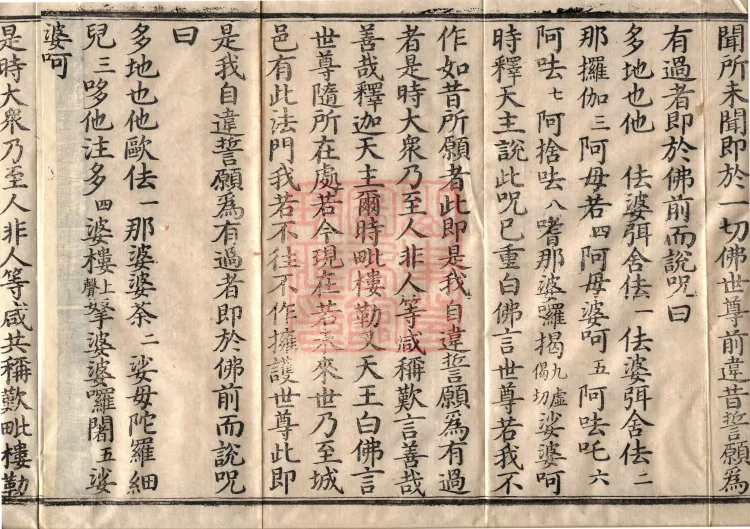 聞所未聞即於一切佛世尊前違昔誓願為
有過者即於佛前而說呪曰
多地也他　佉婆弭舍佉一佉婆弭舍佉二
那攞伽三阿母若四阿毋婆呵五阿呿吒六
阿呿七阿捨呿八嗜那婆羅揭九虛偈切娑婆呵
時釋天主說此呪已重白佛言世尊若我不
作如昔所願者此即是我自違誓願為有過
者是時大眾乃至人非人等咸稱歎言善哉
善哉釋迦天主爾時毗樓勒叉天王白佛言
世尊隨所在處若今現在若未來世乃至城
邑有此法門我若不往不作擁護世尊此即
是我自違誓願為有過者即於佛前而說呪
曰
多地也他歐佉一那婆婆荼二娑毋陀羅細
兒三哆他注多四婆樓上聲拏婆婆囉闍五娑
婆呵
是時大眾乃至人非人等咸共稱歎毗樓勒